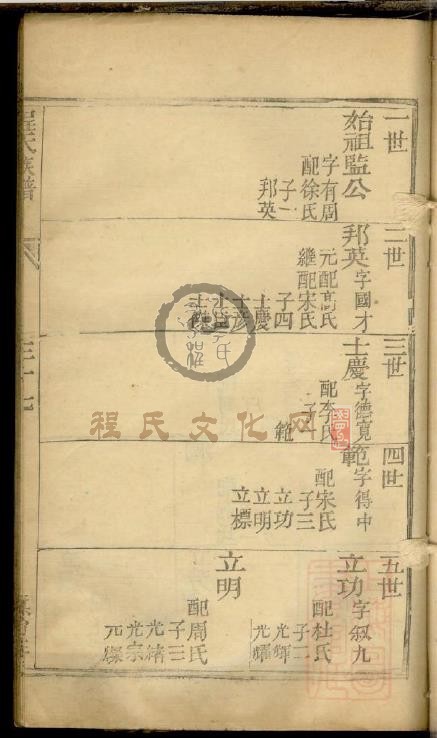 一世
始祖監公
字有周
配徐氏
子一
邦英
二世
邦英 字國才
元配高氏
繼配宋氏
子四
士慶
士彥
三世
士慶 字德寬
配李氏
範
四世
範 字得中
配宋氏
子三
立功
立明
立標
五世
立功 字叙九
配杜氏
子二
光輝
光耀
立明
配周氏
子三
光緒
光宗
元燦
程氏文化网
氏族譜